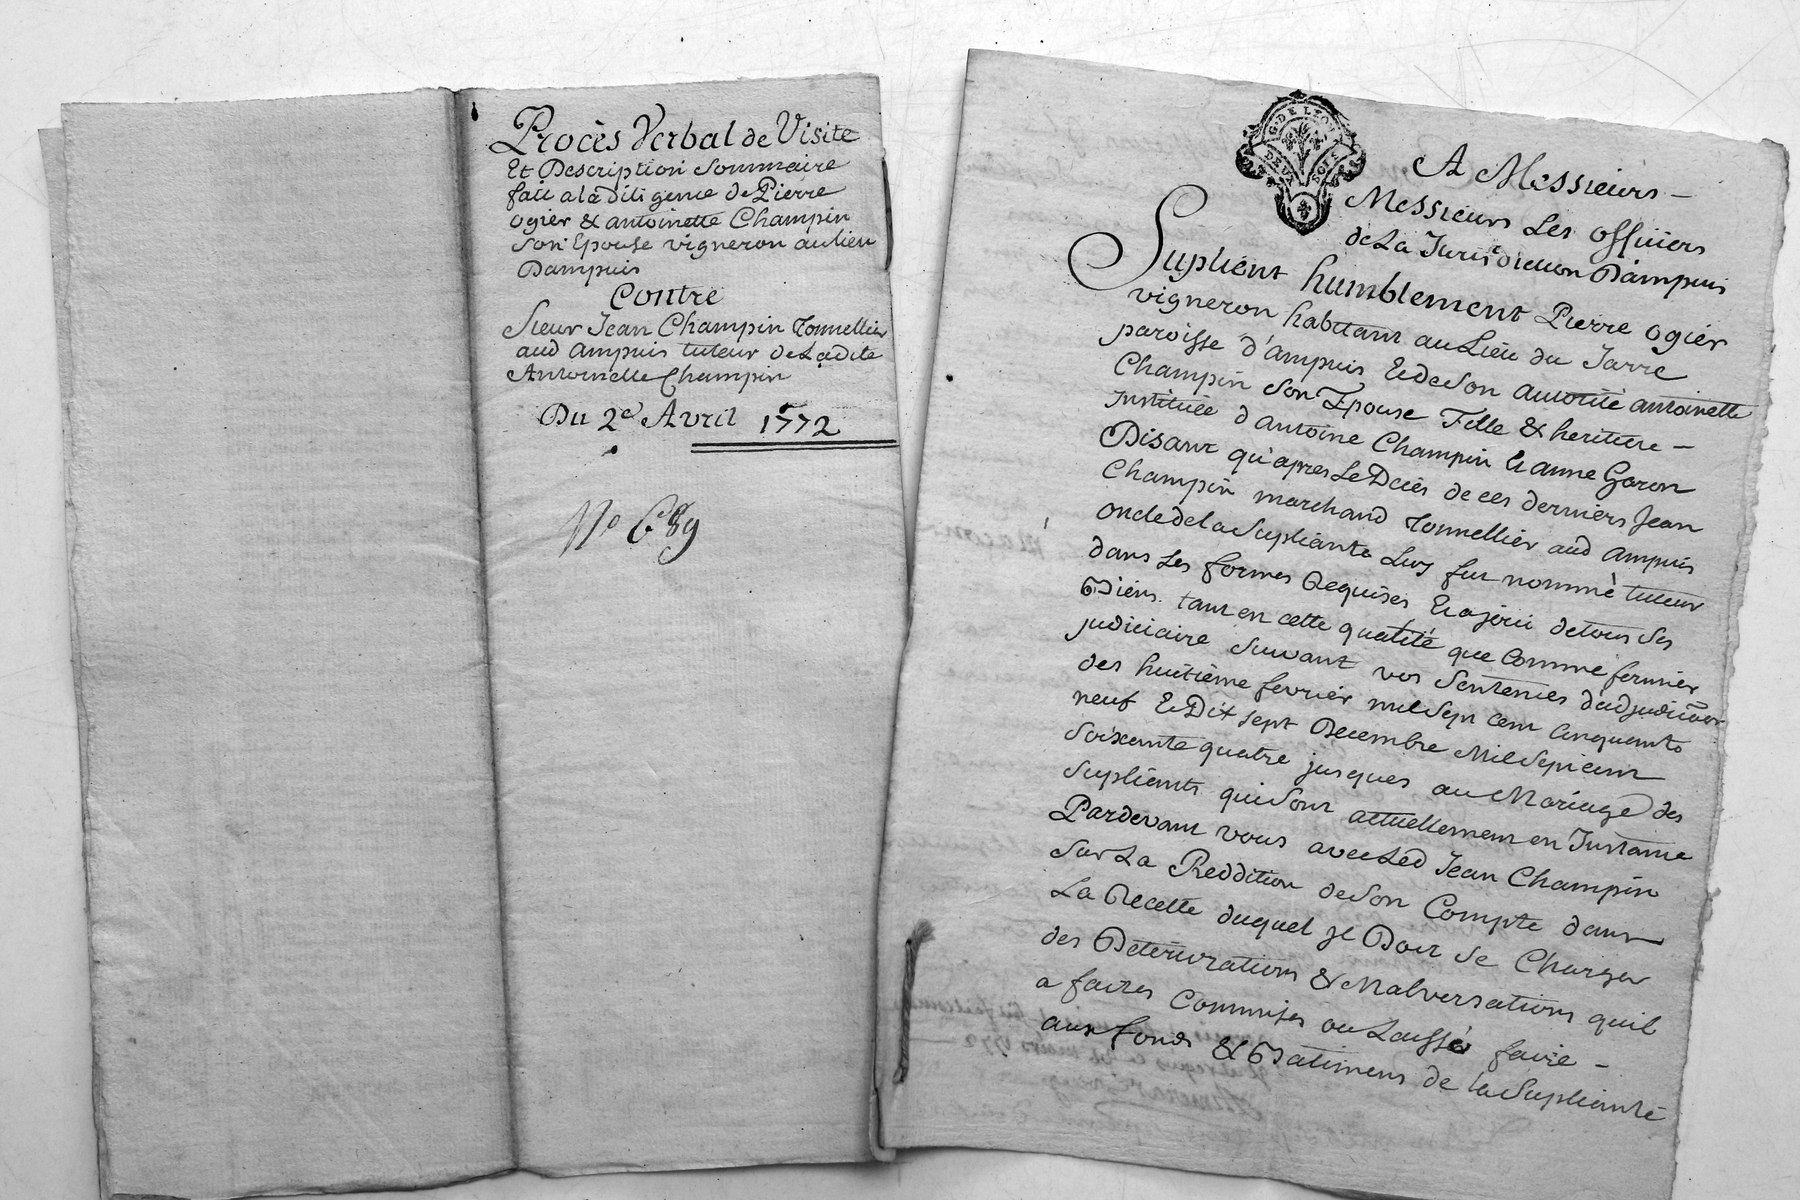 Procès Verbal de Visite
Et Description Sommaire
fait a la Diligence de Pierre
ogier & antoinette Champin
Son Epouse vigneron au lieu
Dampuis
Contre
Sieur Jean Champin Tonnellier
aud Ampuis tuteur de Ladite
Antoinette Champin
Du 2e Avril 1772
No 689
G. DE LYON
DEUX SOLS
A Messieurs -
Messieurs Les officiers
de La Jurisdiction Dampuis
Suplient humblement Pierre ogier
vigneron habitant au Lieu du Jarre
paroisse d'ampuis Et de Son autorité antoinette
Champin Son Epouse Fille & heritiere -
Instituée d'antoine Champin Et anne Garon
Disant qu'apres Le Decès de ces derniers Jean
Champin marchand Tonnellier aud Ampuis
oncle de la Supliante Luy fut nommé tuteur
dans Les formes Requises Et a joui de tous Ses
Biens tant en cette qualité que Comme fermier
judiciaire Suivant vos Sentences d'adjudication
des huitième fevrier mil Sept Cent Cinquante
neuf Et Dix sept Decembre Mil Sept cent
Soixante quatre jusques au Mariage des
Supliants qui Sont actuellement en Instance
Pardevant vous avec Led Jean Champin
Sur La Reddition de Son Compte dans
La Recette duquel Il Doit Se Charger
des Deteriorations & Malversations quil
a faites Commises ou Laissé faire -
aux fonds & Batimens de la Supliante